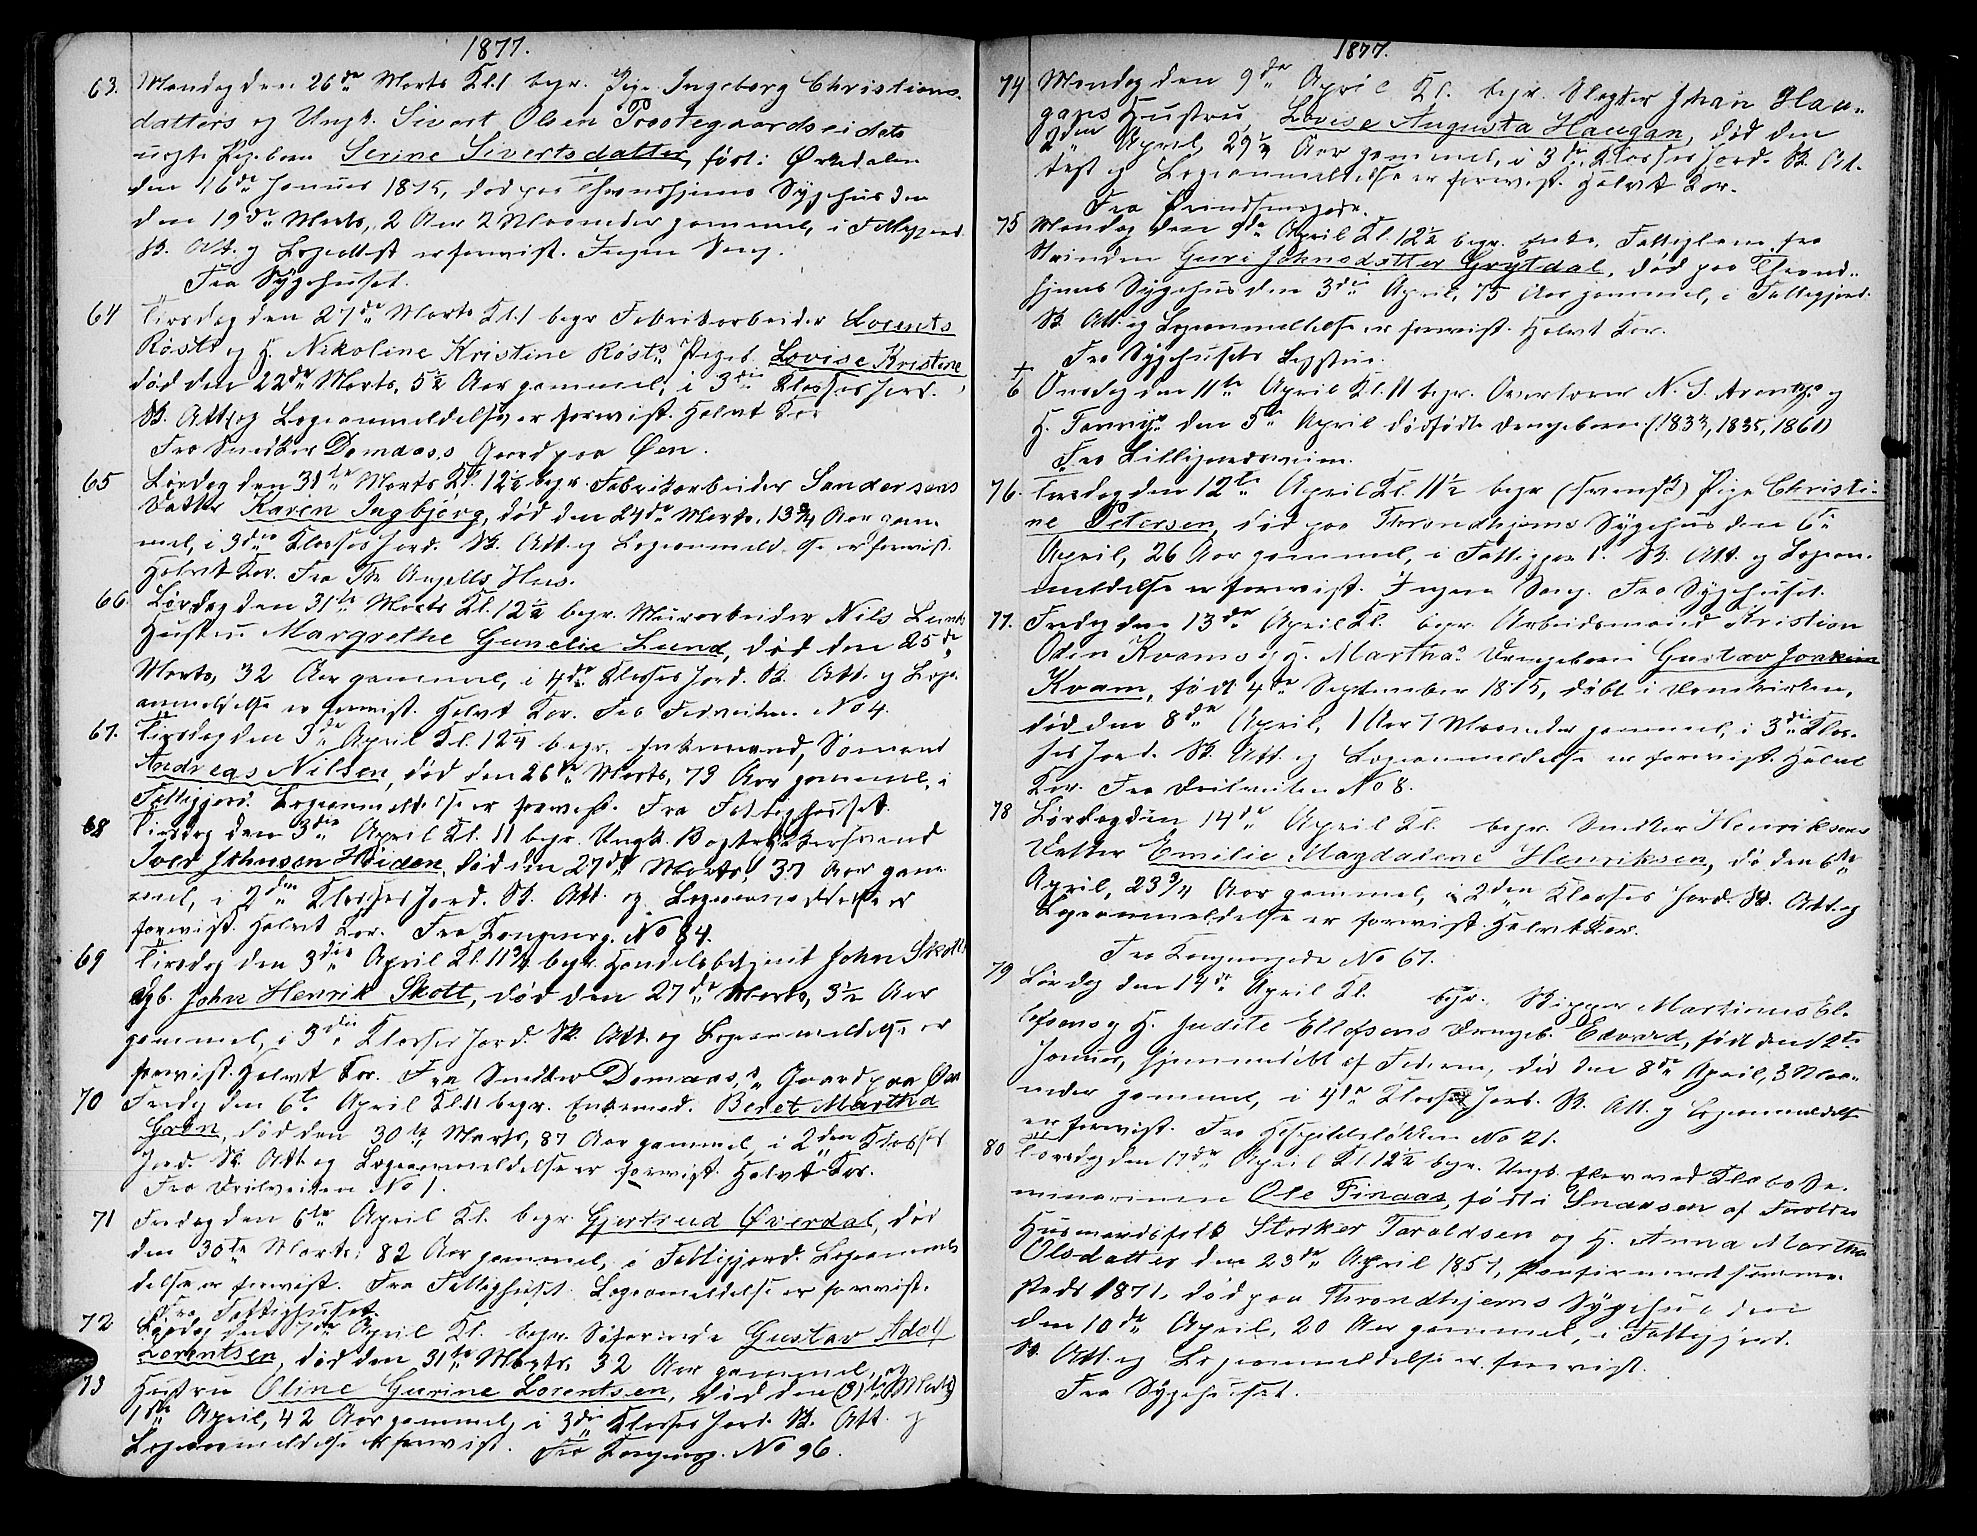 1877.
63. Mandag den 26de Marts Kl. 1 begr. Pige Ingeborg Christians-
datters og Ungk. Sivert Olsen Prostegaardseidets
uægte Pigebarn Serine Sivertsdatter, født iØrkedalen
den 16de Januar 1875, død paa Throndhjems Sygehus den
den 19de Marts, 2 Aar 2 Maaneder gammel, i Fattigjord.
Sk. Att. og Lægeattest er forevist. Ingen Sang.
Fra Sygehuset.
64 Tirsdag den 27de Marts Kl. 1 begr. Fabrikarbeider Lorents
Røst og H. Nikoline Kristine Røsts Pigeb. Lovise Kristine,
død den 22de Marts, 5½ Aar gammel, i 3die Klasses Jord.
Sk. Att. og Lægeanmeldelse er forevist. Halvt Kor
Fra Snedker Domaas's Gaard paa Øen.
65 Lørdag den 31te Marts Kl. 12½ begr. Fabrikarbeider Sandersens
Datter Karen Ingbjørg, død den 24de Marts, 13¾ Aar gam-
mel, i 3die Klasses Jord. Sk. Att. og Lægeanmeldelse er forevist.
Halvt Kor. Fra Th. Angells Hus.
66. Lørdag den 31te Marts Kl. 12½ begr. Murarbeider Nils Lunds
Hustru Margrethe Gunelie Lund, død den 25de
Marts, 32 Aar gammel, i 4de Klasses Jord. Sk. Att. og Læge-
anmeldelse er forevist. Halvt Kor. Fra No 4.
67. Tirsdag den 3die April Kl. 12¼ begr. Enkemand, Sømand
Andreas Nilsen, død den 26de Marts, 73 Aar gammel, i
Fattigjord. Lægeanmeldelse er forevist. Fra Fattighuset.
68 Tirsdag den 3die April Kl. 11 begr. Ungk. Bogtrykkersvend
Johnsen Høiden, død den 27de Marts, 37 Aar gam-
mel, i 2den Klasses Jord. Sk. Att. og Lægeanmeldelse er
forevist. Halvt Kor. Fra Kongensg. No 84.
69 Tirsdag den 3die April Kl. 11¾ begr. Handelsbetjent John Skotts
Dgb. John Henrik Skott, død den 27de Marts, 3½ Aar
gammel, i 3die Klasses Jord. Sk. Att. og Lægeanmeldelse er
forevist. Halvt Kor. Fra Snedker Domaas's Gaard paa Øen
70 Fredag den 6te April Kl. 11 begr. Enkemad. Beret Martha
Grøn, død den 30te Marts, 87 Aar gammel, i 2den Klasses
Jord. Sk. Att. og Lægeanmeldelse er forevist. Halvt Kor.
Fra No 1.
71 Fredag den 6te April Kl. begr. Gjertrud Øverdal, død
den 30te Marts, 82 Aar gammel, i Fattigjord. Lægeanmel-
delse er forevist. Fra Fattighuset. Lægeanmeldelse er forevist.
Fra Fattighuset.
72 Lørdag den 7de April Kl. begr. Gustav Adolf
Lorentsen, død den 31te Marts, 32 Aar gammel, og
73 Hustru Oline Gurine Lorentsen, død den (31te Marts)
1ste April, 42 Aar gammel, i 3die Klasses Jord. Sk. Att. og
Lægeanmeldelse er forevist. Fra Kongensg. No 96.
1877.
74 Mandag den 9de April Kl. begr. Slagter Johan Hau-
gans Hustru, Lovise Augusta Haugan, død den
2den April, 29¼ Aar gammel, i 3die Klasses Jord. Sk. At-
test og Lægeanmeldelse er forevist. Halvt Kor.
Fra
75 Mandag den 9de April Kl. 12½ begr. Enke, Fattiglem fra
Strinden Guri Johnsdatter Grytdal, død paa Thrond-
hjems Sygehus den 3die April, 75 Aar gammel, i Fattigjord.
Sk. Att. og Lægeanmeldelse er forevist. Halvt Kor.
Fra Sygehusets Ligstue.
† 6 Onsdag den 11te April Kl. 11 begr. Overlærer N. S. og
H. Fannys den 5te April dødfødte Drengebarn. (1833, 1835, 1861)
Fra
76. Torsdag den 12te April Kl. 11½ begr. (svensk) Pige Christi-
ne Petersen, død paa Throndhjems Sygehus den 6te
April, 26 Aar gammel, i Fattigjord. Sk. Att. og Lægean-
meldelse er forevist. Ingen Sang. Fra Sygehuset.
77. Fredag den 13de April Kl. begr. Arbeidsmand Kristian
Odin Kvams og H. Marthas Drengebarn Gustav Joakim
Kvam, født 4de September 1875, døbt i Domkirken,
død den 8de April, 1 Aar 7 Maaneder gammel, i 3die Klas-
ses Jord. Sk. Att. og Lægeanmeldelse er forevist. Halvt
Kor. Fra No 8.
78 Lørdag den 14de April Kl. begr. Snedker Henriksens
Datter Emilie Magdalene Henriksen, dø den 6te
April, 23¾ Aar gammel, i 2den Klasses Jord. Sk. Att. og
Lægeanmeldelse er forevist. Halvt Kor.
Fra Kongensgade No 67.
79 Lørdag den 14de April Kl. begr. Skipper Martinus El-
lefsens og H. Judite Ellefsens Drengeb. Edvard, født den 12te
Januar, hjemmedøbt af Faderen, død den 8de April, 3 Maa-
neder gammel, i 4de Klasses Jord. Sk. Att. og Lægeanmeldelse
er forevist. Fra Hospitalsløkken No 21.
80 Torsdag den 17de April Kl. 12½ begr. Ungk. Elev ved Klæbo Se-
minarium Ole Finaas, født i Snaasen af Forældre
Husmandsfolk Storker Taraldsen og H. Anna Martha
Olsdatter den 23de April 1857, konfirmeret samme-
steds 1871, død paa Throndhjems Sygehus den
den 10de April, 20 Aar gammel, i Fattigjord.
Sk. Att. og Lægeanmeldelse er forevist.
Fra Sygehuset.